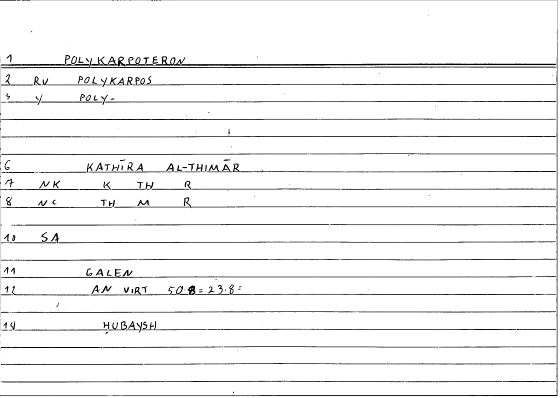 1 POLYKARPOTERON
2 RV POLYKARPOS
3 Y POLY-
6 KATHĪRA AL-THIMĀR
7 NK K TH R
8 NC TH M R
10 SA
11 GALEN
12 AN VIRT 508=23.8=
14 ḤUBAYSH